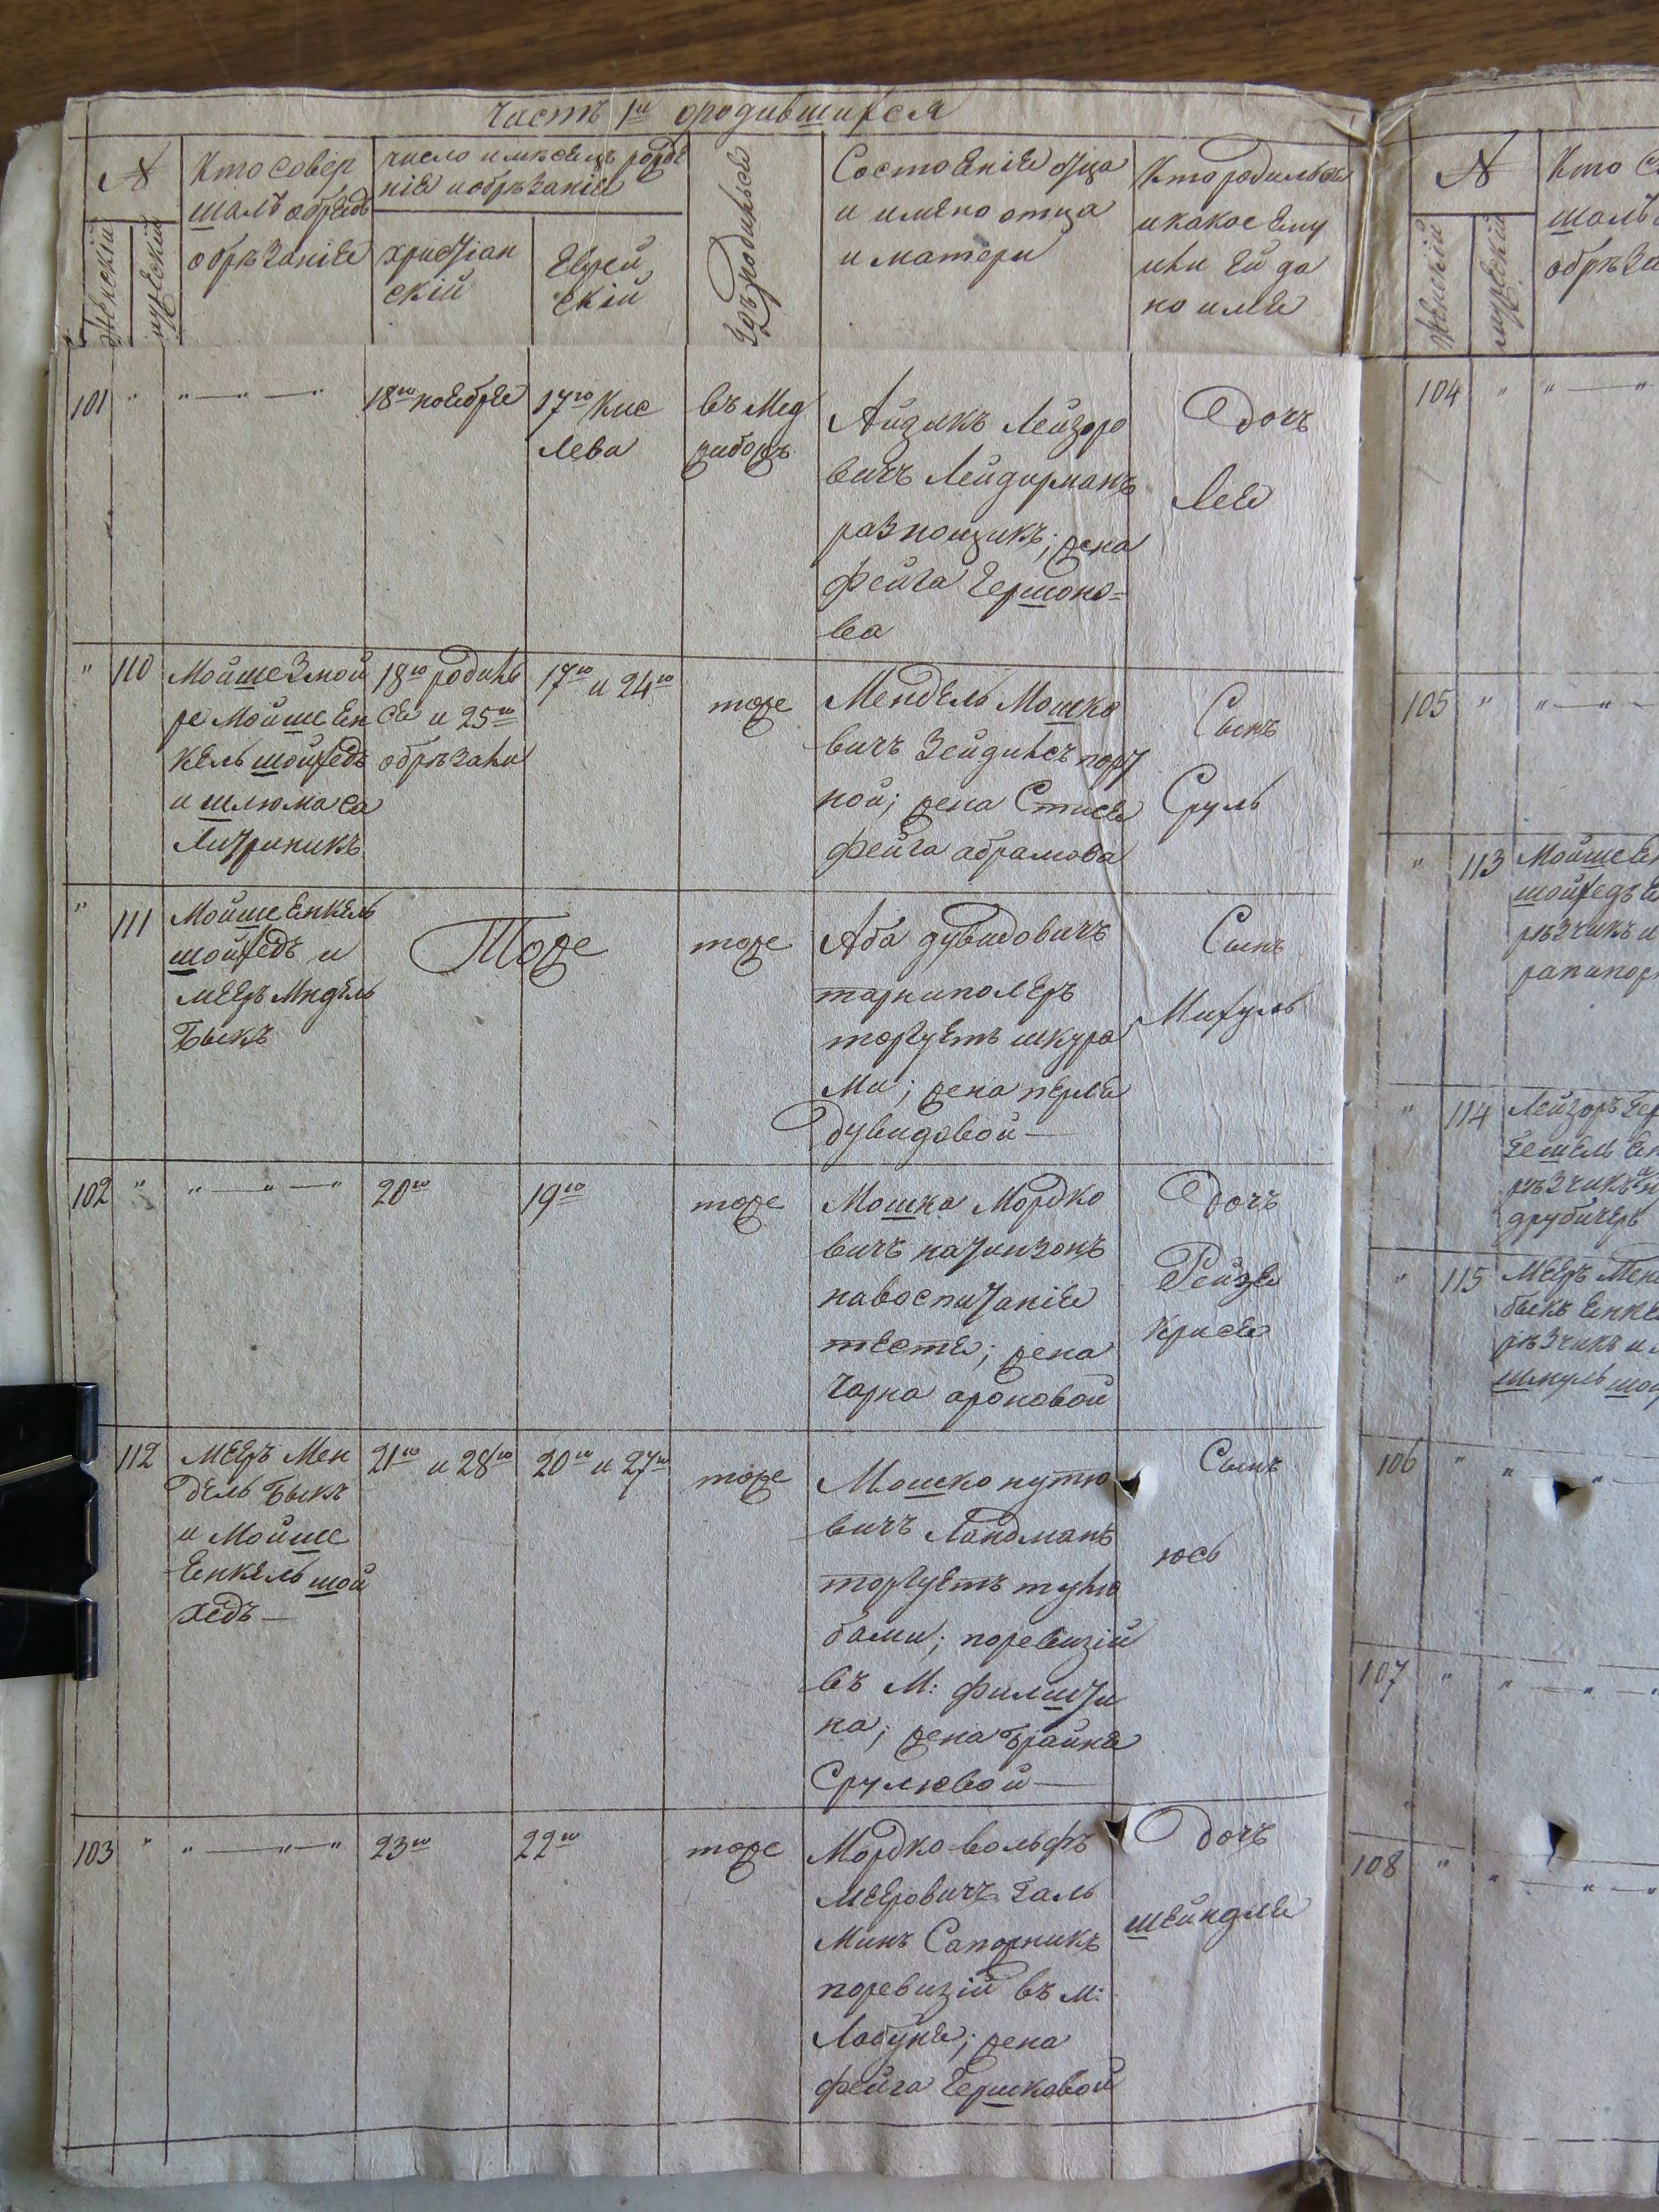 Часть 1я ородившихся
№
Женскій
мужескій
Кто совер
шалъ обредъ
обрѣзаніе
число имѣсецъ рожде
ніе иобрѣзаніе
христіан
скій
Еврей
скій
Гдѣ родилисе
Состоеніе отца
и имено отца
и матери
Кто родилсе
икакое Ему
или Ей да
но име
101 " " — " — "
18го ноебре
17го Кис
лева
въ Мед
жибожъ
Айзикъ Лейзоро
вичъ Лейдирманъ
разнощикъ; жена
фейга Гершоно=
ва
Дочь
Лее
" 110
Мойше Змой
ре Мойше Ен
кель шойхедъ
и шлюма са
литраникъ
18го родилъ
се и 25го
обрѣзали
17го и 24го
тоже
Мендель Мошко
вичъ Зейдисъ порт
ной; жена Стисе
фейга абрамова
Сынъ
Сруль
" 111
Мойше Енкель
шойхедъ и
Мееръ Мндель
Быкъ
Тоже
тоже
Аба дувидовичъ
тарниполеръ
торгуетъ шкура
ми; жена перле
дувидовой —
Сынъ
Михуль
102 " " — " — "
20го
19го
тоже
Мошка Мордко
вичъ натинзонъ
навоспитаніе
тесте; жена
Чарна ароновой
Дочь
Рейзе
Крисе
112
Мееръ Мен
дель Быкъ
и Мойше
Енкель шой
хедъ —
21го и 28го
20го и 27го
тоже
Мошко нутю
вичъ Ландманъ
торгуетъ тулю
бами; поревизіи
въ М: филшти
на; жена Брайна
Срулювой —
Сынъ
юсь
103 " " — " — "
23го
22го
тоже
Мордко вольфъ
Мееровичъ Галь
Минъ Сапожникъ
поревизіи въ м:
Лабуне; жена
фейга Гершковой
Дочь
шейндле
№
Женскій
мужескій
Кто со
шалъ
обрѣза
104 " " — "
105 " " — " —
" 113
Мойше Ен
шойхедъ
рѣзчикъ и
рапапор
" 114
Лейзоръ Гер
Гешель Ен
рѣзчикъ
друбичеръ
" 115
Мееръ Мен
быкъ Енке
рѣзчикъ и
шмуль шой
106 " " — " —
107 " " — " —
108 " " — " —